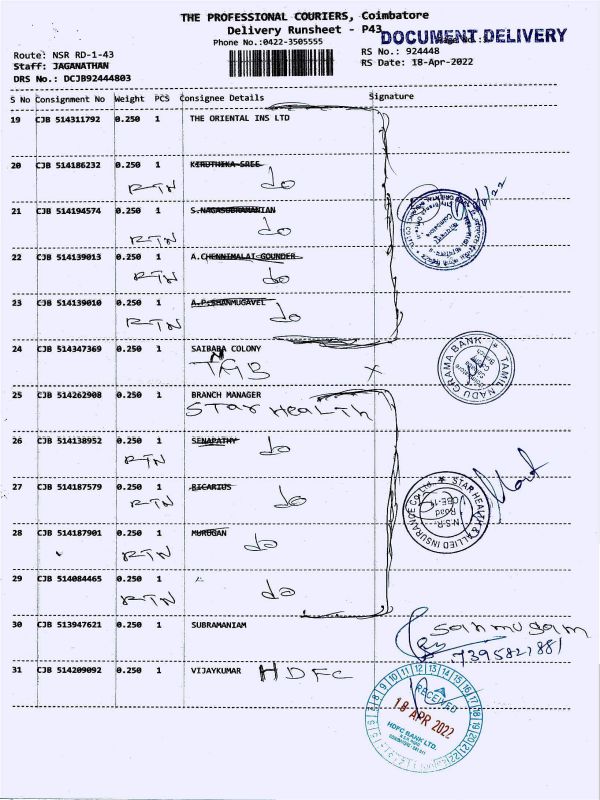 THE PROFESSIONAL COURIERS, Coimbatore
Delivery Runsheet - P43
DOCUMENT DELIVERY
Phone No.:0422-3505555
Route: NSR RD-1-43
Staff: JAGANATHAN
DRS No.: DCJB92444803
RS No.: 924448
RS Date: 18-Apr-2022
S No Consignment No Weight PCS Consignee Details Signature
19 CJB 514311792 0.250 1 THE ORIENTAL INS LTD
20 CJB 514186232 0.250 1 KIRUTHIKA SREE
RTN do
21 CJB 514194574 0.250 1 S.NAGASUBRAMANIAN
RTN do
22 CJB 514139013 0.250 1 A.CHENNIMALAI GOUNDER
RTN do
23 CJB 514139010 0.250 1 A.P.SHANMUGAVEL
RTN do
24 CJB 514347369 0.250 1 SAIBABA COLONY
TMB X
TAMIL NADU GRAMA BANK
25 CJB 514262908 0.250 1 BRANCH MANAGER
Star Health
26 CJB 514138952 0.250 1 SENAPATHY
RTN do
27 CJB 514187579 0.250 1 BICARIUS
RTN do
STAR HEALTH & ALLIED INSURANCE CO. LTD.
N.S.R. Road
CBE-11
28 CJB 514187901 0.250 1 MURUGAN
RTN do
29 CJB 514084465 0.250 1
RTN do
30 CJB 513947621 0.250 1 SUBRAMANIAM
Sanmugam
7395821881
31 CJB 514209092 0.250 1 VIJAYKUMAR HDFC
RECEIVED
18 APR 2022
HDFC BANK LTD.